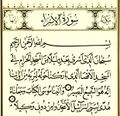 سورة الإسراء
بسم الله الرحمن الرحيم
سبحان الذي أسرى بعبده ليلا من المسجد الحرام إلى
المسجد الأقصا الذي باركنا حوله لنريه من آياتنا إنه
هو السميع البصير وآتينا موسى الكتاب وجعلناه
هدى لبني إسرائيل ألا تتخذوا من دوني وكيلا